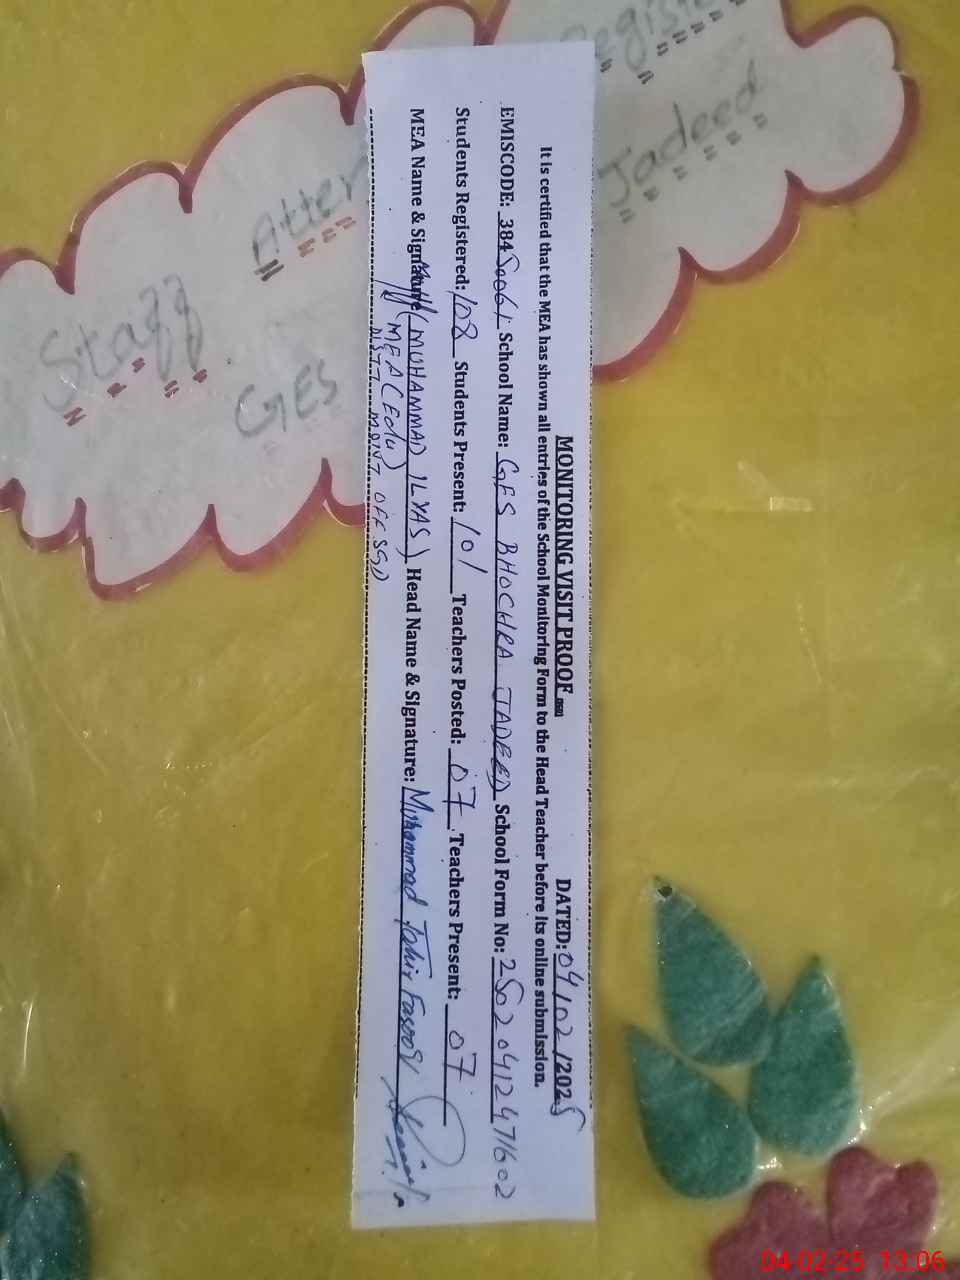 MONITORING VISIT PROOF DATED: 04/02/2025
It is certified that the MEA has shown all entries of the School Monitoring Form to the Head Teacher before its online submission.
EMISCODE: 38450061 School Name: GES BHOCHRA JADEED School Form No: 25020412471602
Students Registered: 108 Students Present: 101 Teachers Posted: 07 Teachers Present: 07
MEA Name & Signature (MUHAMMAD ILYAS) Head Name & Signature: Muhammad Tahir Farooqi
MEA (Edu)
DISTT MONT OFF SGD
Register
Jadeed
Atten
Staff
GES
04-02-25 13:06